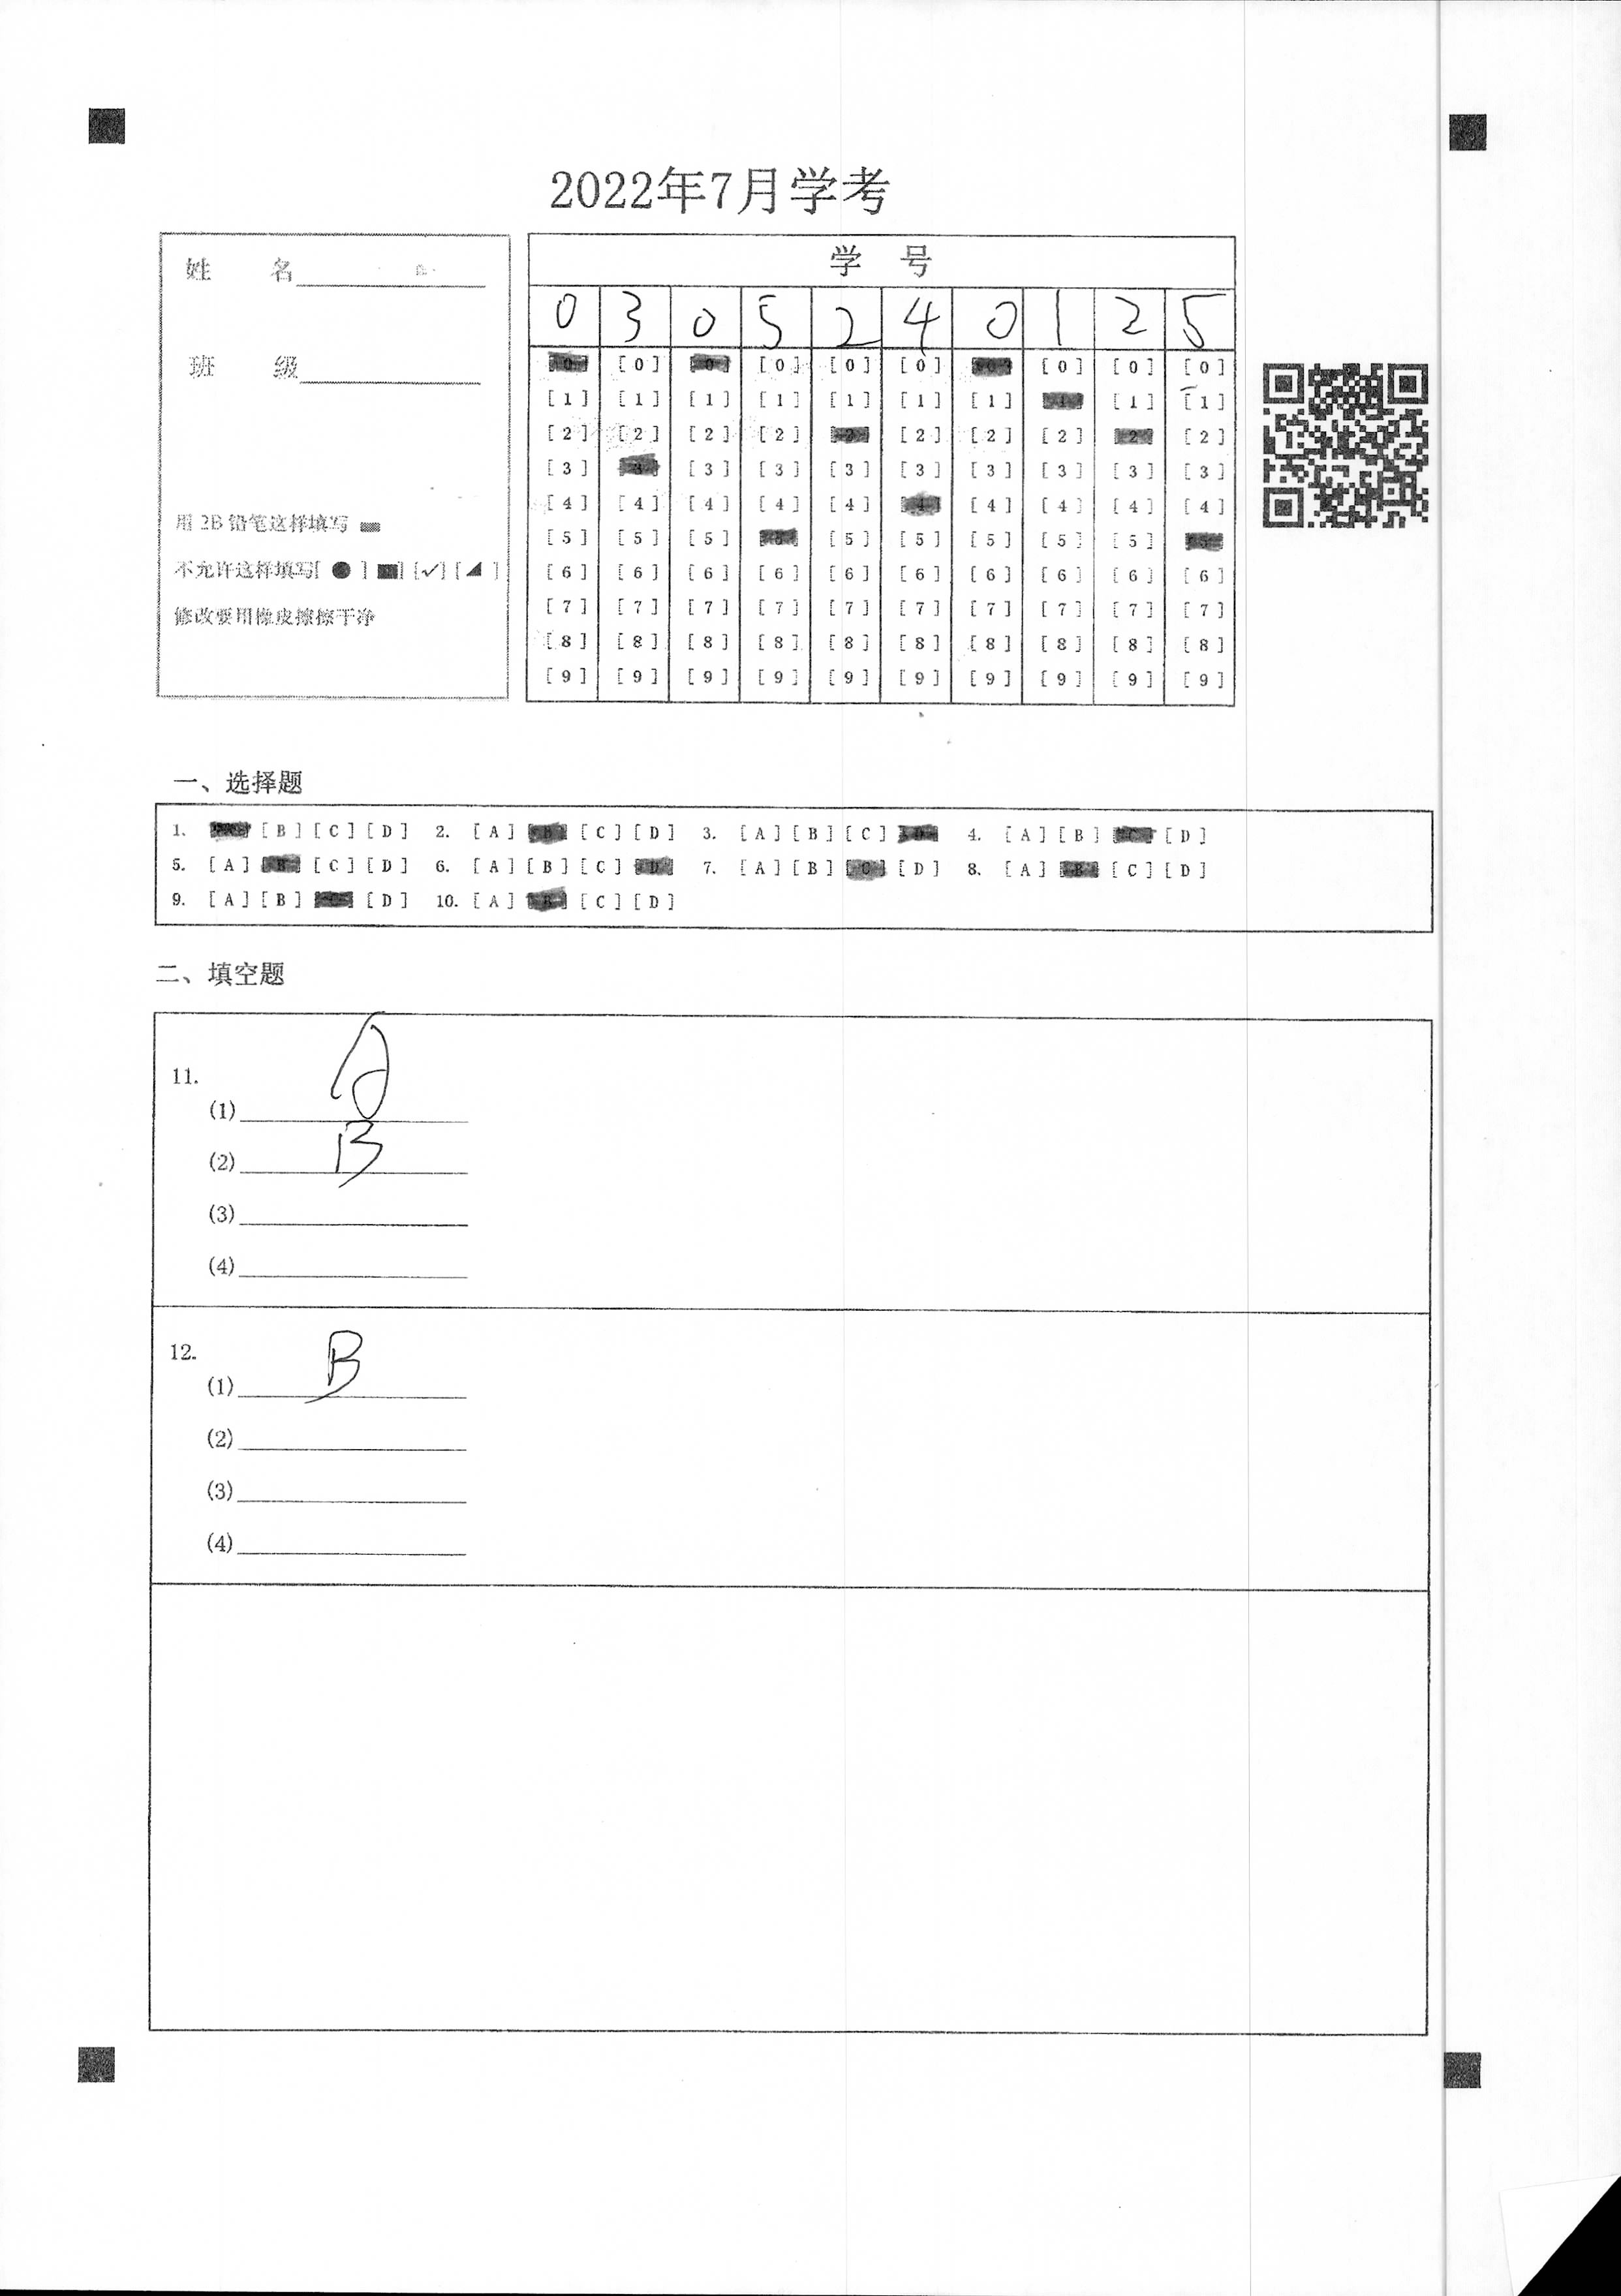 2022年7月学考
姓 名
班 级
用 2B 铅笔这样填写
不允许这样填写[ ● ] [■] [✓] [◢ ]
修改要用橡皮擦擦干净
学 号
0 3 0 5 2 4 0 1 2 5
[0] [0] [0] [0] [0] [0] [0] [0] [0] [0]
[1] [1] [1] [1] [1] [1] [1] [1] [1] [1]
[2] [2] [2] [2] [2] [2] [2] [2] [2] [2]
[3] [3] [3] [3] [3] [3] [3] [3] [3] [3]
[4] [4] [4] [4] [4] [4] [4] [4] [4] [4]
[5] [5] [5] [5] [5] [5] [5] [5] [5] [5]
[6] [6] [6] [6] [6] [6] [6] [6] [6] [6]
[7] [7] [7] [7] [7] [7] [7] [7] [7] [7]
[8] [8] [8] [8] [8] [8] [8] [8] [8] [8]
[9] [9] [9] [9] [9] [9] [9] [9] [9] [9]
一、选择题
1. [A] [B] [C] [D] 2. [A] [B] [C] [D] 3. [A] [B] [C] [D] 4. [A] [B] [C] [D]
5. [A] [B] [C] [D] 6. [A] [B] [C] [D] 7. [A] [B] [C] [D] 8. [A] [B] [C] [D]
9. [A] [B] [C] [D] 10. [A] [B] [C] [D]
二、填空题
11.
(1) A
(2) B
(3)
(4)
12.
(1) B
(2)
(3)
(4)